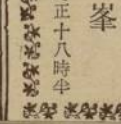 峯
正十八時半